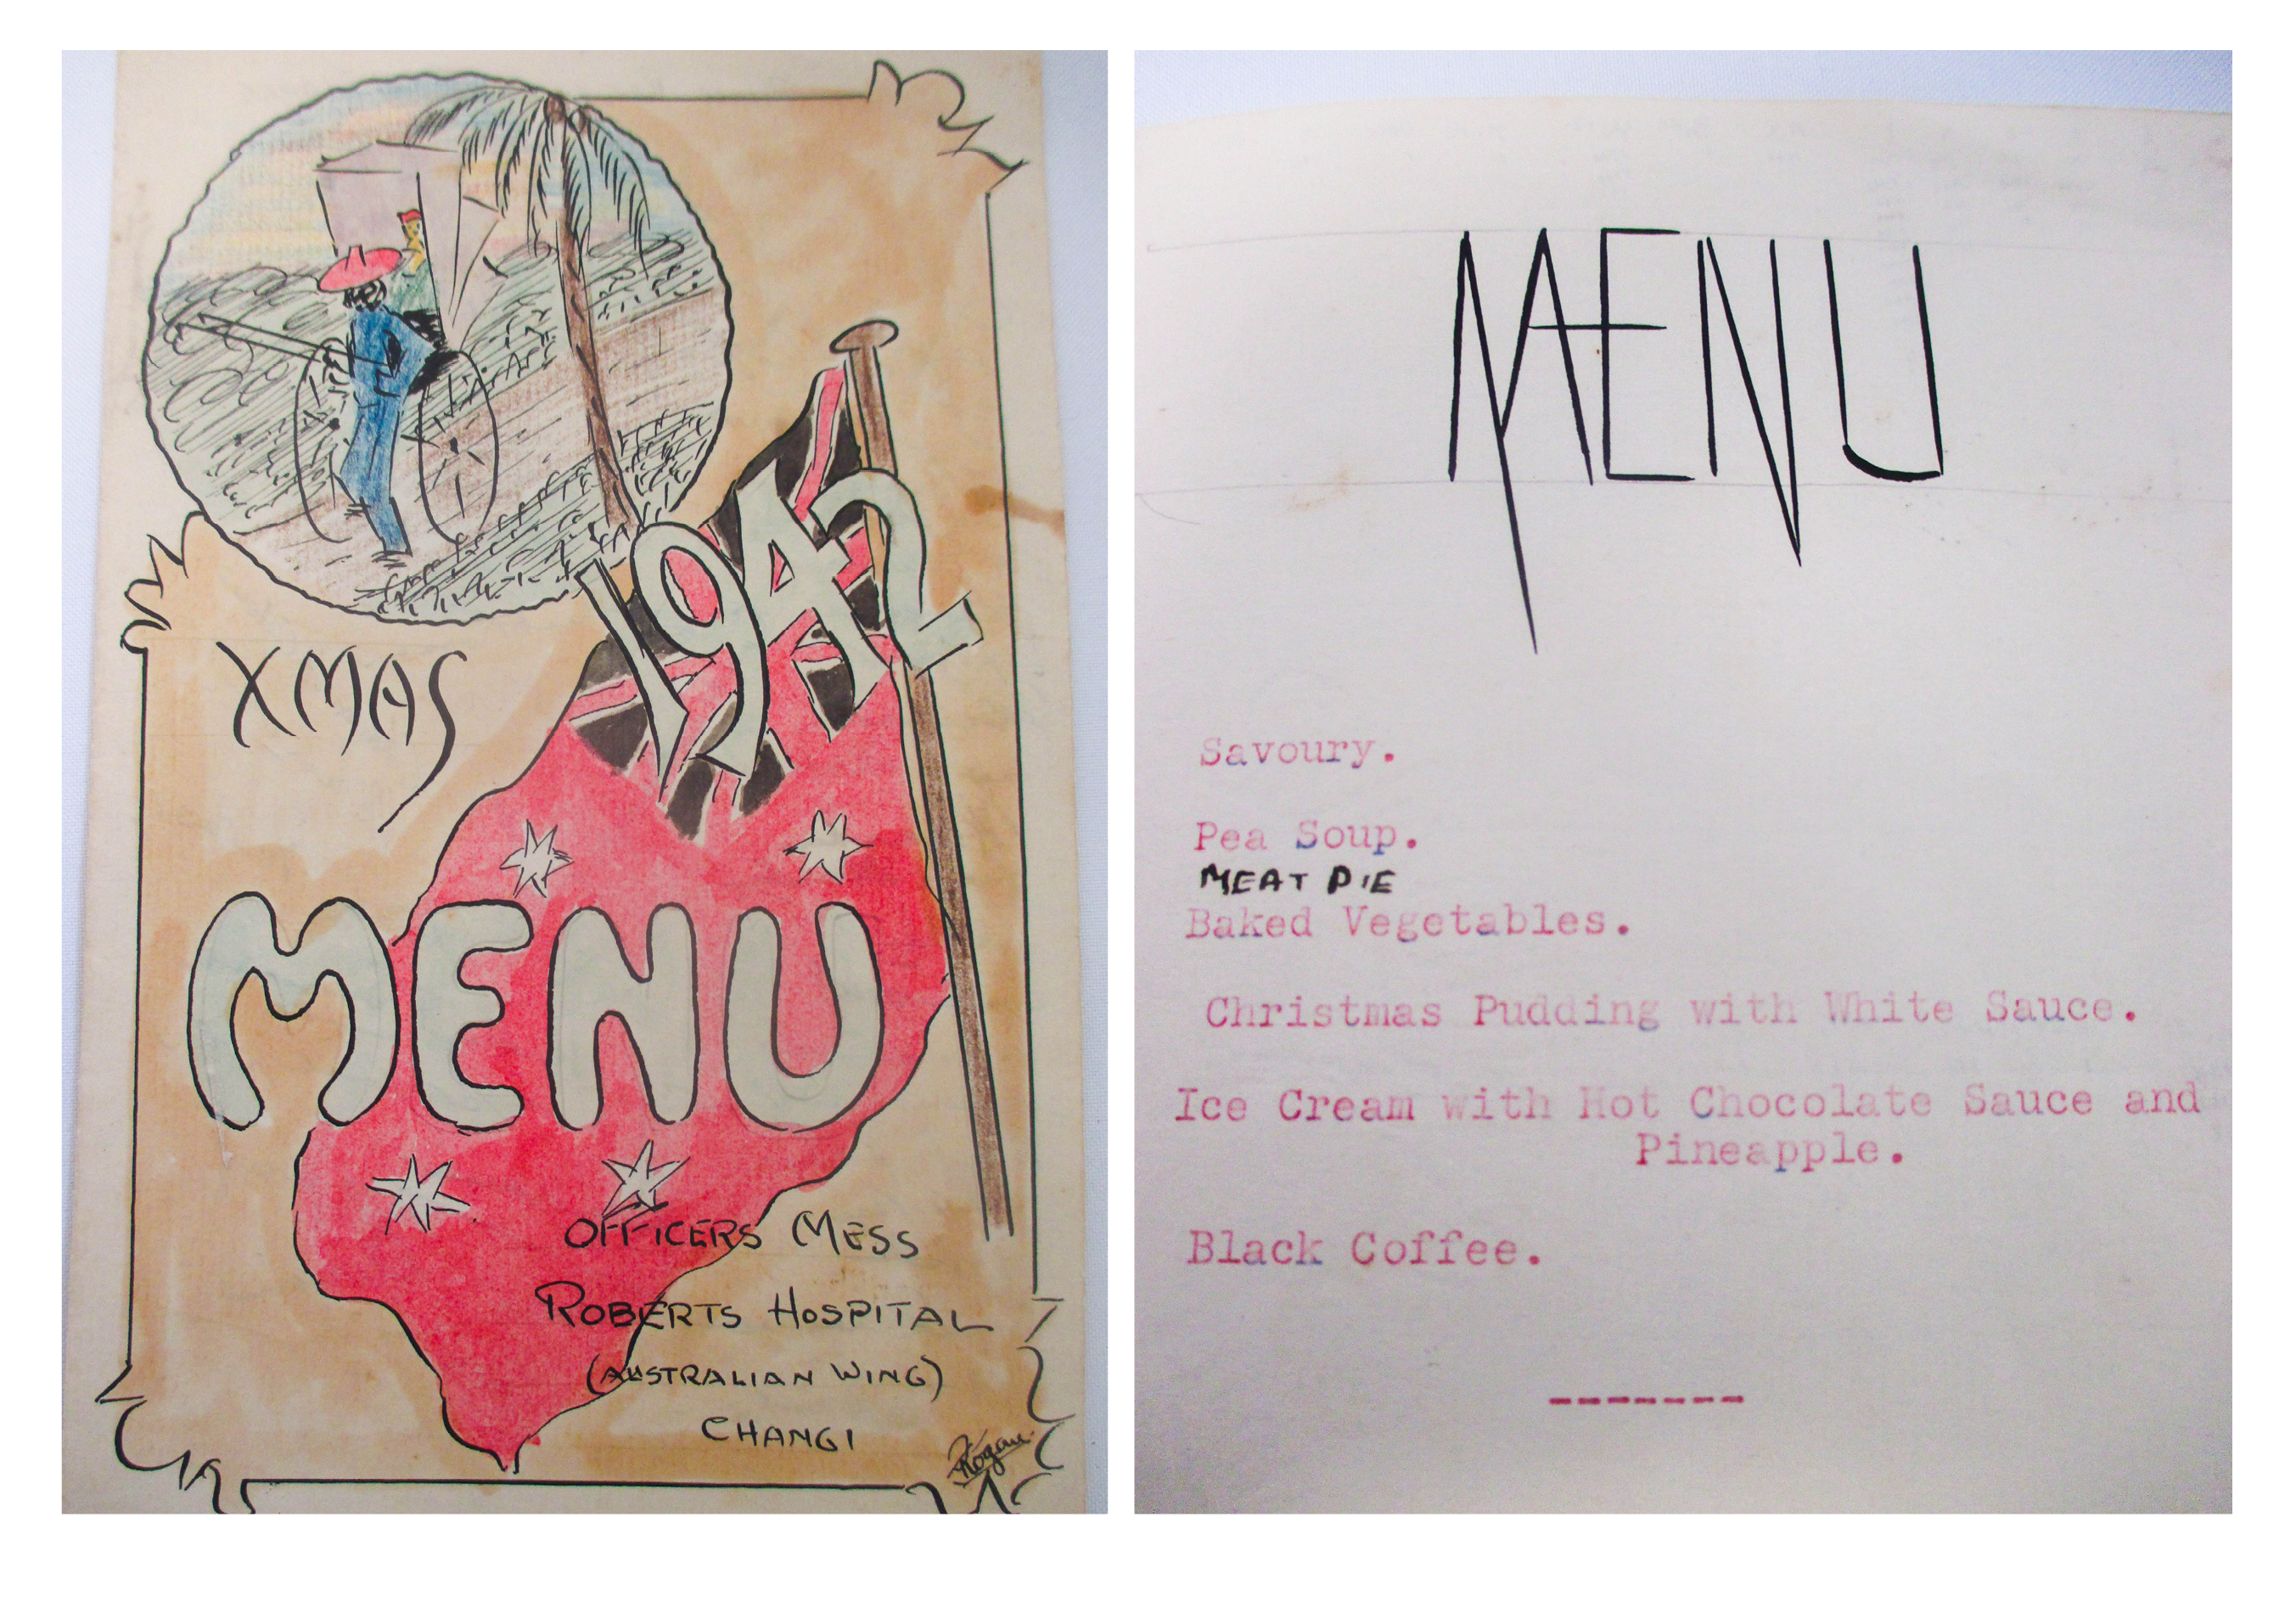 1942
XMAS
MENU
OFFICERS MESS
ROBERTS HOSPITAL
(AUSTRALIAN WING)
CHANGI
MENU
Savoury.
Pea Soup.
MEAT PIE
Baked Vegetables.
Christmas Pudding with White Sauce.
Ice Cream with Hot Chocolate Sauce and
Pineapple.
Black Coffee.
-------